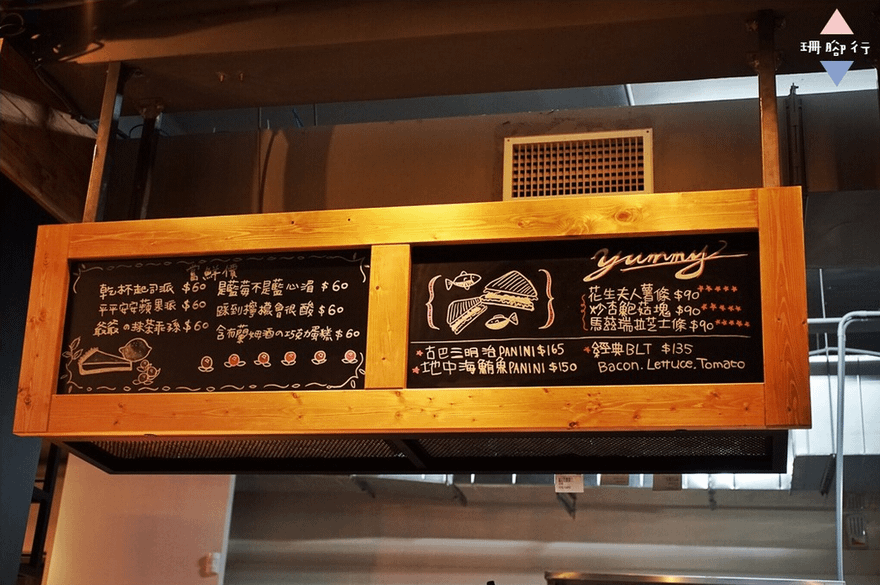 珊腳行
嘗鮮價
乾杯起司派 $60
平平安安蘋果派 $60
爺爺の抹茶乖孫 $60
是藍莓不是藍心湄 $60
踩到檸檬會很酸 $60
含有蘭姆酒の巧克力蛋糕 $60
yummy
花生夫人薯條 $90
炒杏鮑菇塊 $90
馬茲瑞拉芝士條 $90
古巴三明治 PANINI $165
地中海鮪魚 PANINI $150
經典BLT $135
Bacon. Lettuce. Tomato